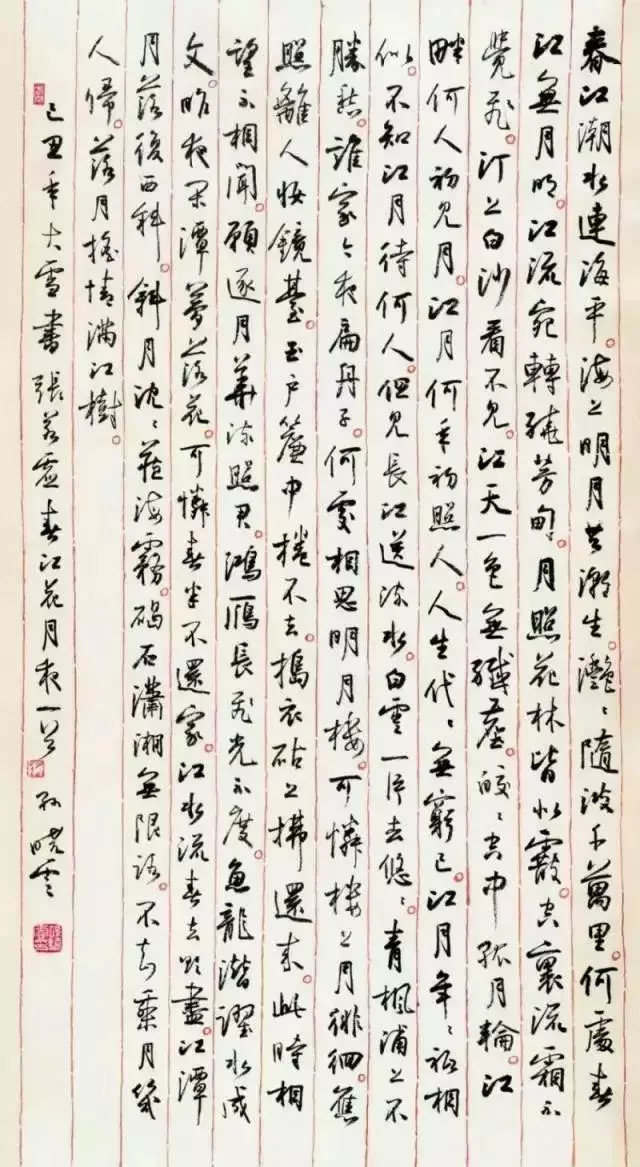 春江潮水連海平。海上明月共潮生。灩〻隨波千萬里。何處春
江無月明。江流宛轉繞芳甸。月照花林皆似霰。空裏流霜不
覺飛。汀上白沙看不見。江天一色無纖塵。皎〻空中孤月輪。江
畔何人初見月。江月何年初照人。人生代〻無窮已。江月年〻祇相
似。不知江月待何人。但見長江送流水。白雲一片去悠〻。青楓浦上不
勝愁。誰家今夜扁舟子。何處相思明月樓。可憐樓上月徘徊。應
照離人妝鏡臺。玉戶簾中捲不去。搗衣砧上拂還來。此時相
望不相聞。願逐月華流照君。鴻雁長飛光不度。魚龍潛躍水成
文。昨夜閑潭夢落花。可憐春半不還家。江水流春去欲盡。江潭
月落復西斜。斜月沈〻藏海霧。碣石瀟湘無限路。不知乘月幾
人歸。落月搖情滿江樹。
己丑年大雪書張若虛春江花月夜一首 孫曉雲